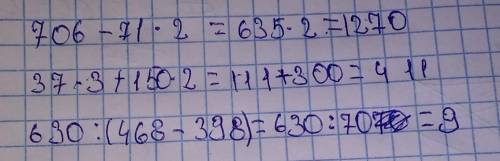 706 - 71 · 2 = 635 · 2 = 1270
37 · 3 + 150 · 2 = 111 + 300 = 411
630 : (468 - 398) = 630 : 70 = 9